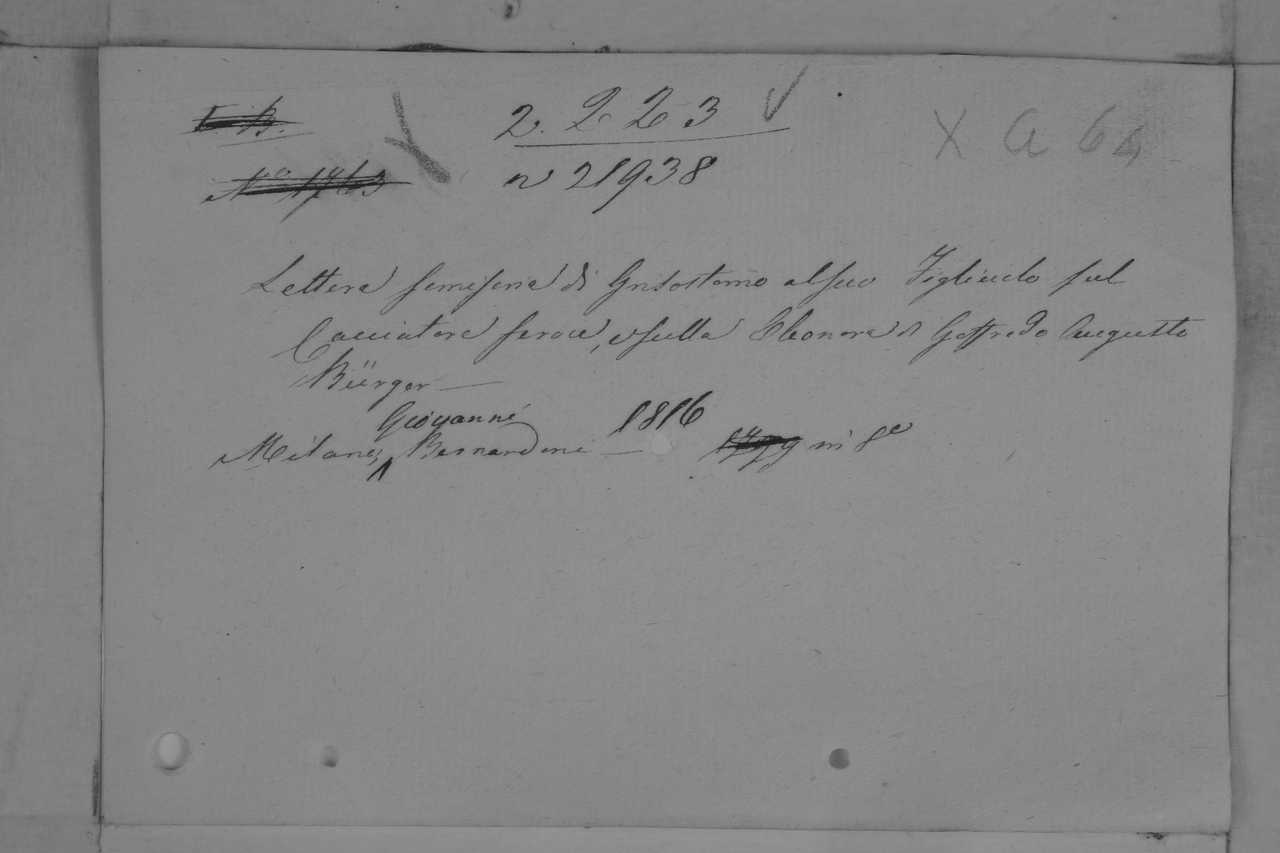 2. 2 2 3 X a 64
N° 1763 n 21938
Lettera semiseria di Grisostomo al suo Figliuolo sul
Cacciatore feroce, e sulla Eleonora di Goffredo Augusto
Bürger
Giovanni 1816
Milano, Bernardoni in 8°